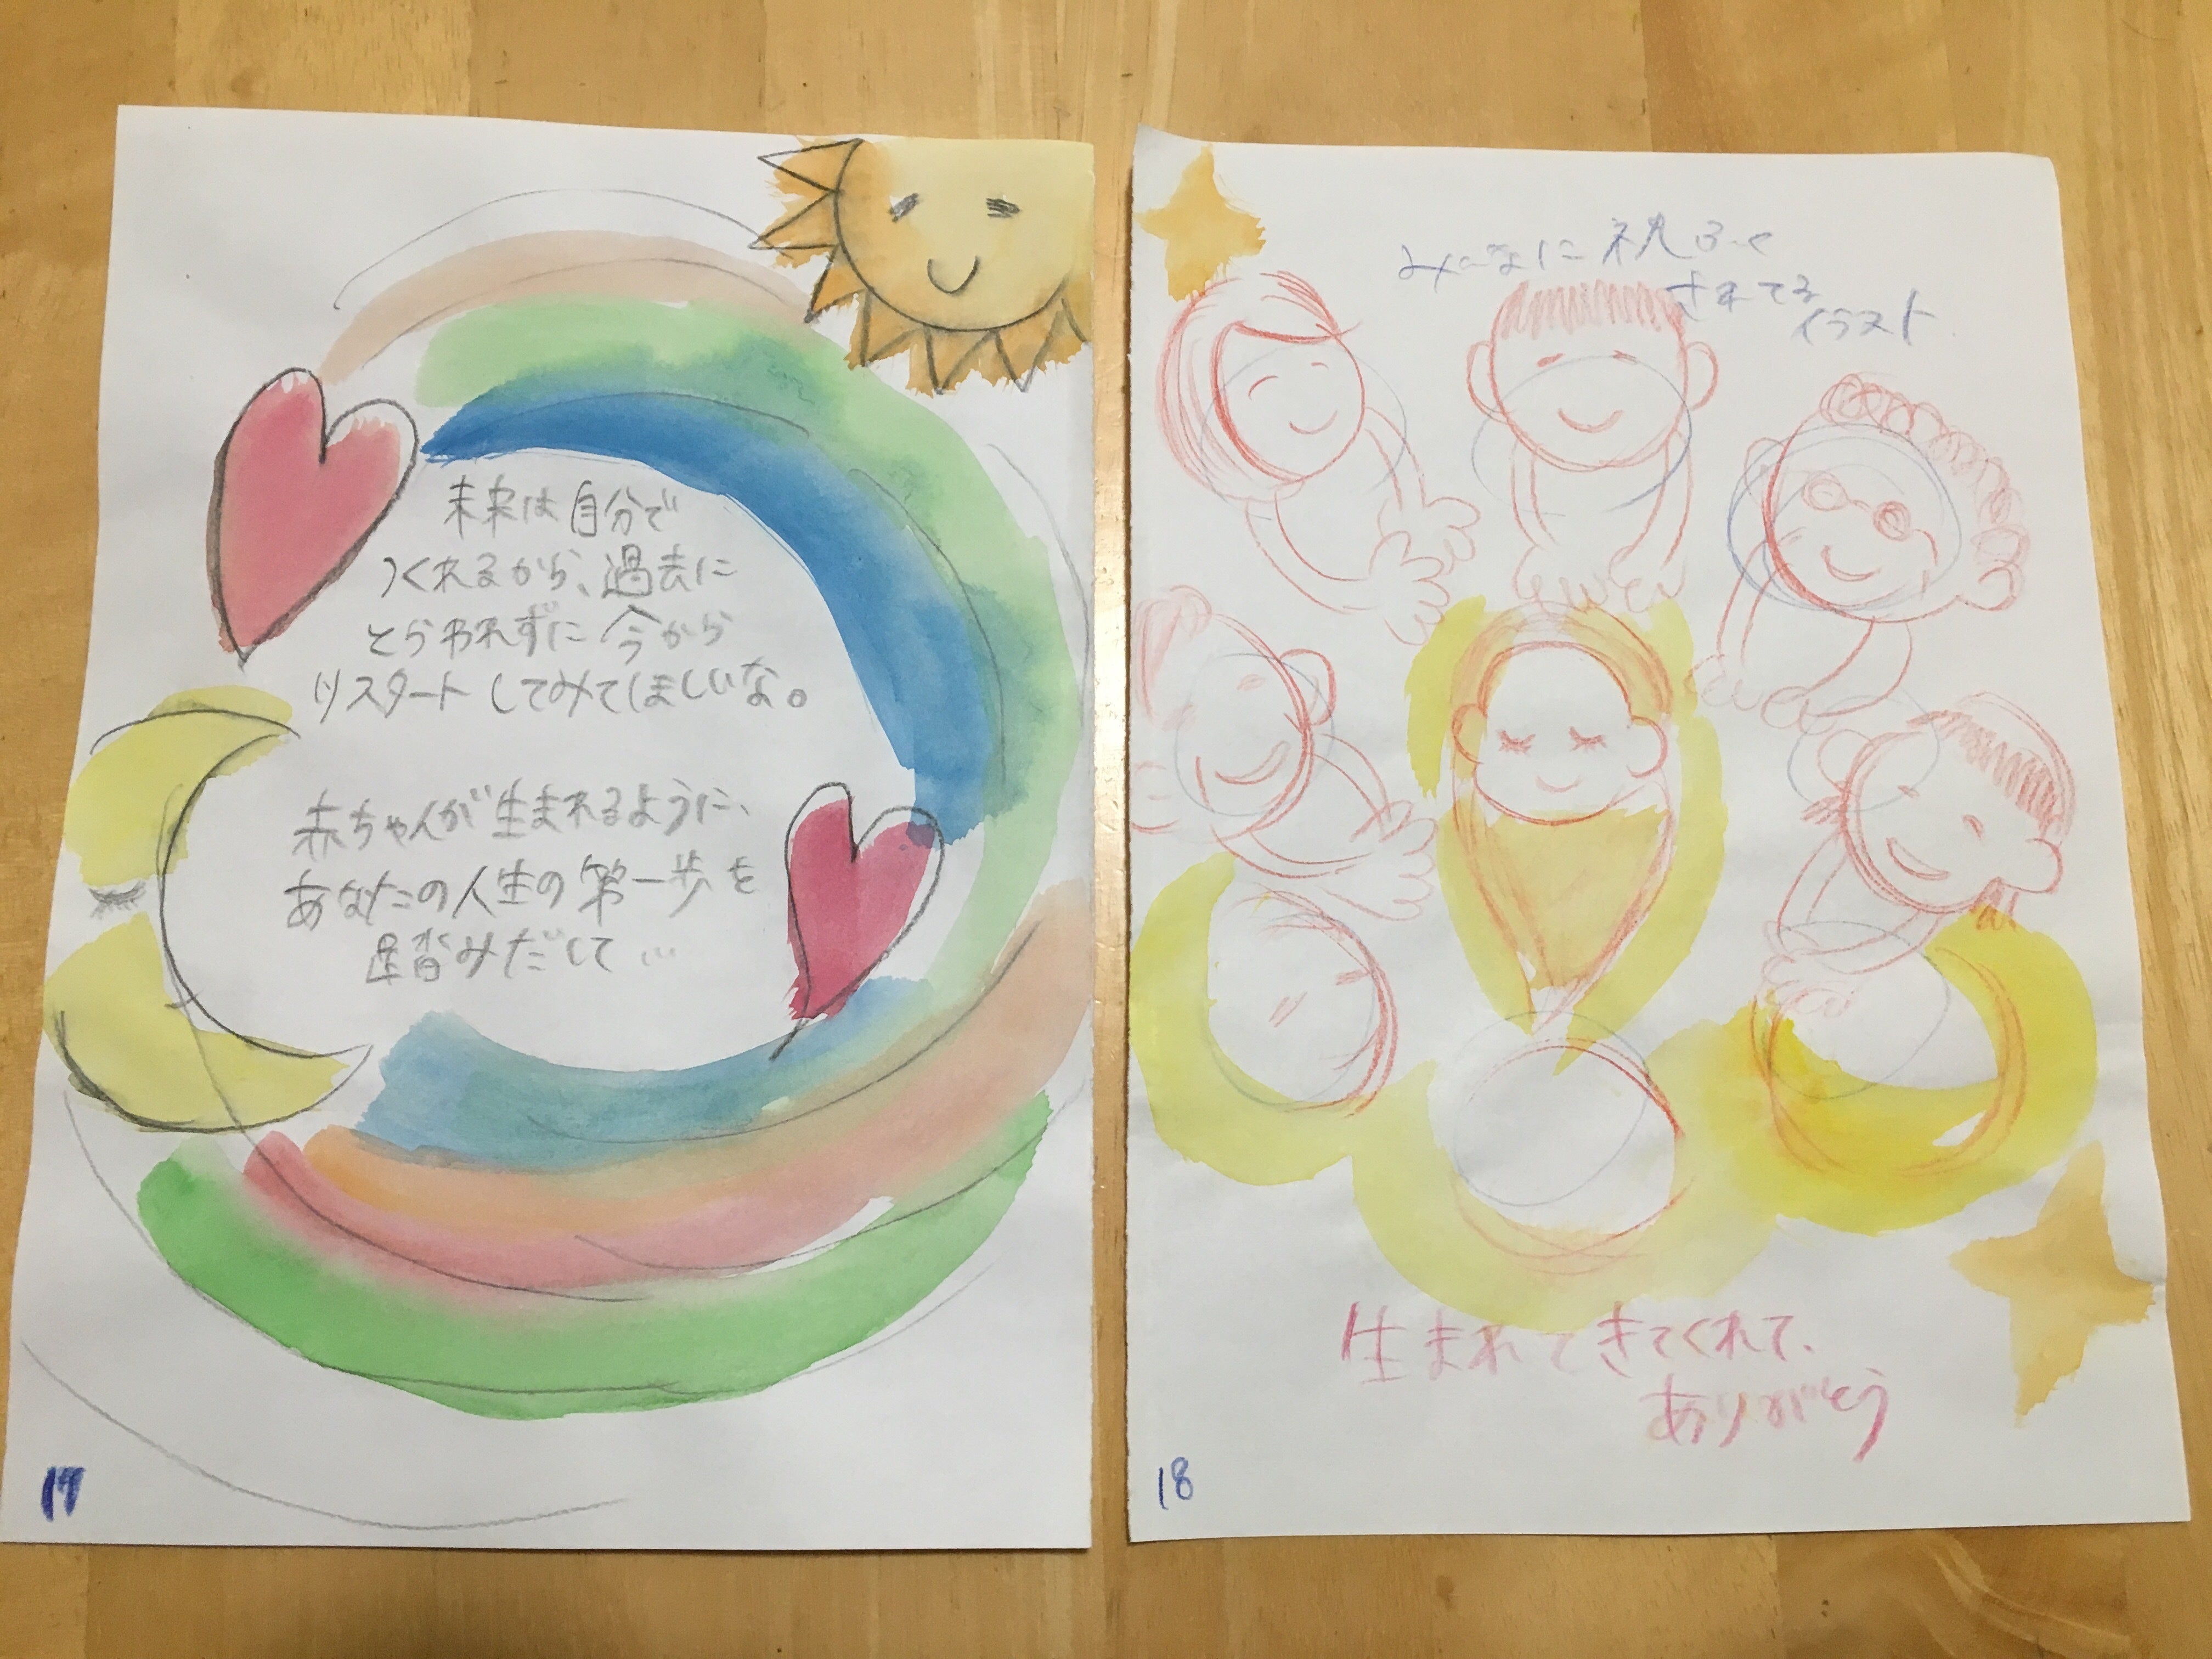 未来は自分で
つくれるから、過去に
とらわれずに今から
リスタートしてみてほしいな。
赤ちゃんが生まれるように、
あなたの人生の第一歩を
踏みだして…
17
みんなに祝ふく
されてる
イラスト
生まれてきてくれて、
ありがとう
18